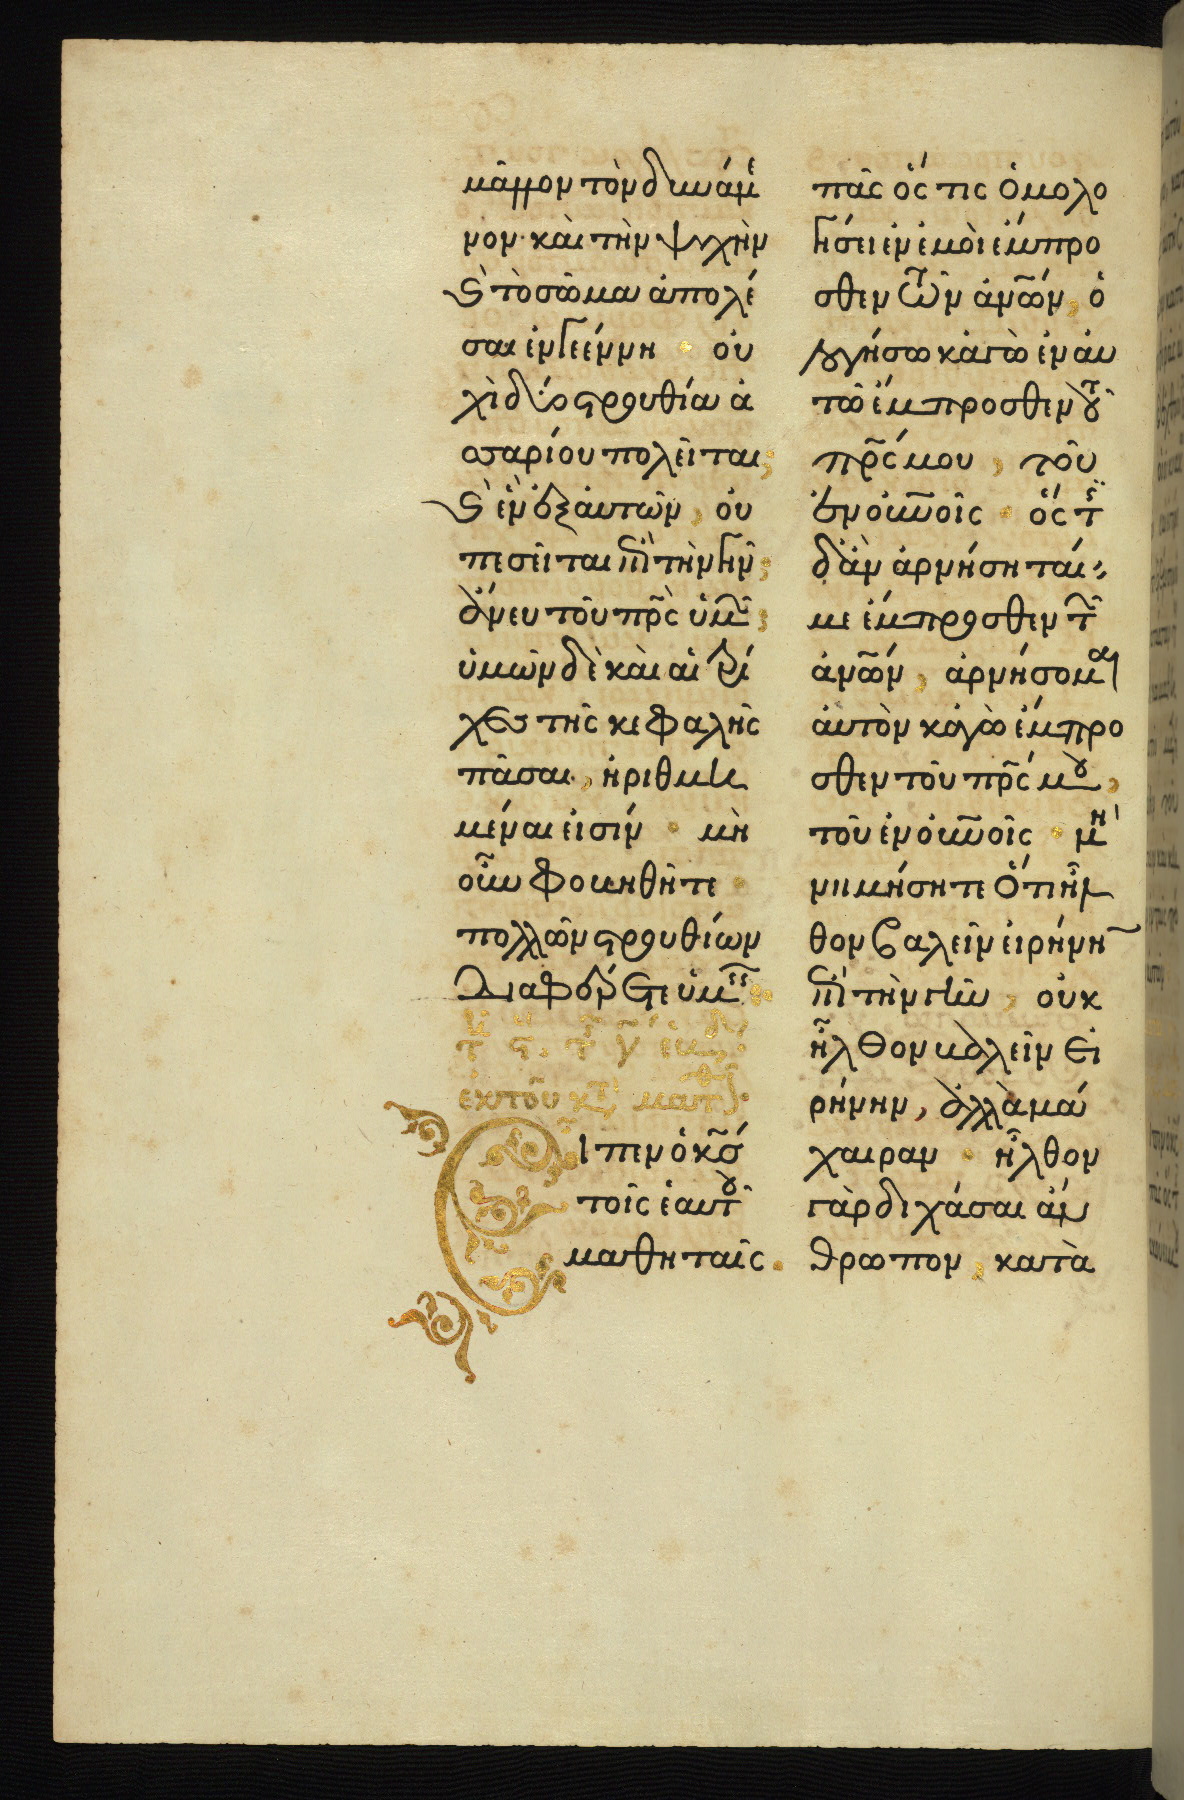 μᾶλλον τὸν δυνάμε
νον· καὶ τὴν ψυχὴν
ϛ̀ τὸ σῶμα ἀπολέ
σαι ἐν γεέννη · οὐ
χὶ δύο στρουθία ἀ
σσαρίου πολεῖται;
ϛ̀ ἓν ἐξ αυτῶν, οὐ
πεσεῖται ἐπὶ τὴν γῆν;
ἄνευ τοῦ πρ̅ς ὑμῶ̅;
ὑμῶν δὲ καὶ αἱ τρί
χες τῆς κεφαλῆς
πᾶσαι, ἠριθμη
μέναι εἰσίν · μὴ
οὖν φοβηθῆτε ·
πολλῶν στρουθίων
διαφέρετε ὑμεῖς ·
ἐκ τοῦ κτ̅ ματθ
Ειπεν ὁ κ̅σ
τοῖς ἑαυτοῦ
μαθηταῖς.
πᾶς ὅς τις ὁμολο
γήσει ἐν ἐμοὶ ἔμπρο
σθεν τῶν ἀν̅ων, ὁ
μολογήσω κἀγὼ ἐν αυ
τῶ ἔμπροσθεν τοῦ
πρ̅ς μου, τοῦ
ἐν οὐν̅οῖς · ὅς τι
δ' ἂν ἀρνήσηταί
με ἔμπροσθεν τῶ̅
ἀν̅ων, ἀρνήσομαι
αὐτὸν κἀγὼ ἔμπρο
σθεν τοῦ πρ̅ς μου,
τοῦ ἐν οὐν̅οῖς · μὴ
νομήσητε ὅτι ἦλ
θον βαλεῖν εἰρήνη̅
ἐπὶ τὴν γῆν, οὐκ
ἦλθον βαλεῖν εἰ
ρήνην, ἀλλὰ μά
χαιραν · ἦλθον
γὰρ διχάσαι ἄν
θρωπον, κατὰ